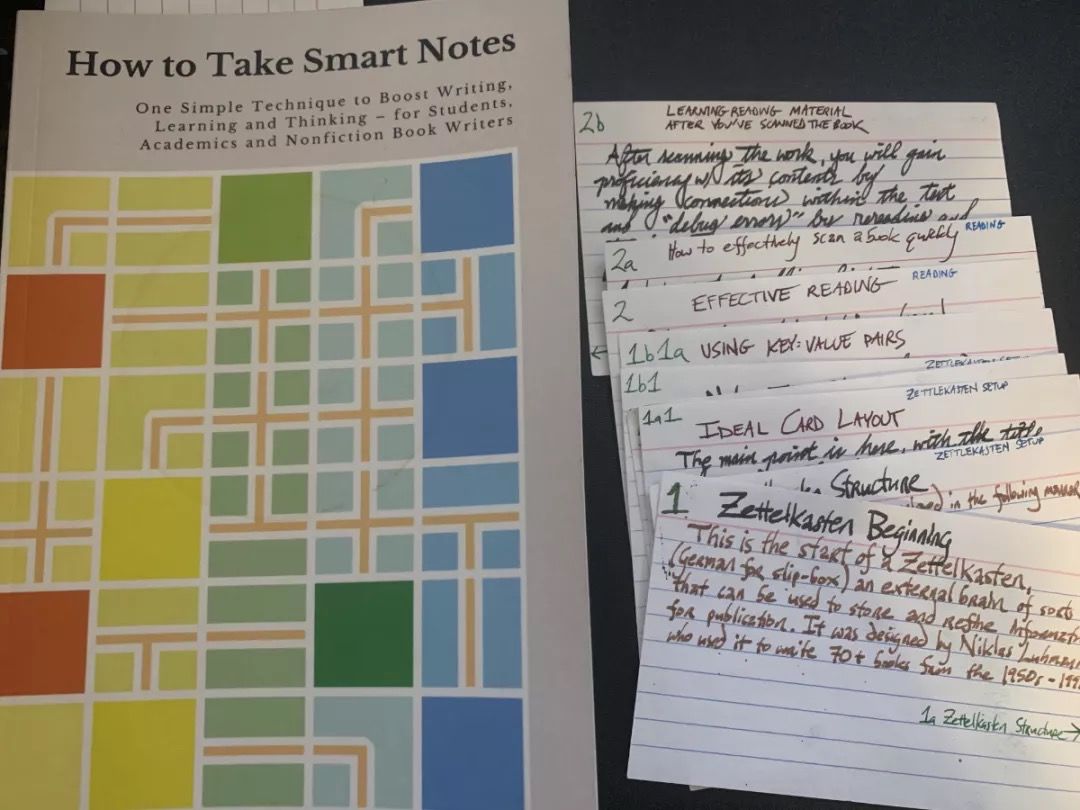 How to Take Smart Notes
One Simple Technique to Boost Writing,
Learning and Thinking – for Students,
Academics and Nonfiction Book Writers
2b
LEARNING READING MATERIAL
AFTER YOU'VE SCANNED THE BOOK
After scanning the work, you will gain
proficiency w/ its contents by
making connections within the text
and "debug errors" by rereading and
2a How to effectively scan a book quickly READING
2 EFFECTIVE READING READING
1b1a USING KEY:VALUE PAIRS
1b1
ZETTLEKASTEN
1a1 ZETTLEKASTEN SETUP
IDEAL CARD LAYOUT
The main point is here, with the title
ZETTLEKASTEN SETUP
Structure
in the following manner
1 Zettelkasten Beginning
This is the start of a Zettelkasten,
(German for slip-box) an external brain of sorts
that can be used to store and refine
for publication. It was designed by Niklas
who used it to write 70+ books from the 1950s -
1a Zettelkasten Structure →